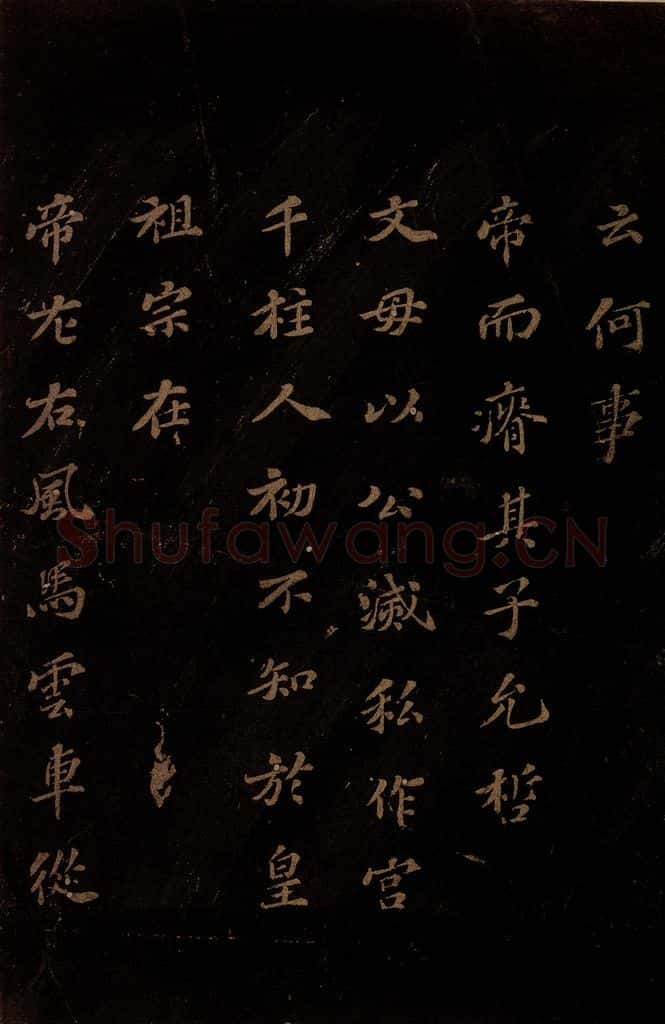 云何事
帝而瘠其子允哲
文母以公滅私作宮
千柱人初不知於皇
祖宗在
帝左右風馬雲車從
Shufawang.CN